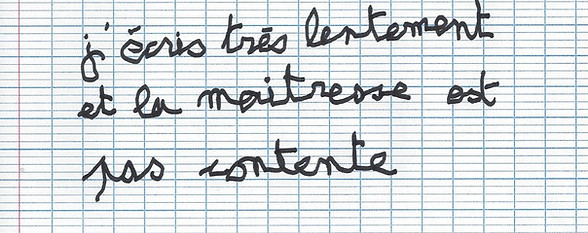 j'écris très lentement
et la maitresse est
pas contente